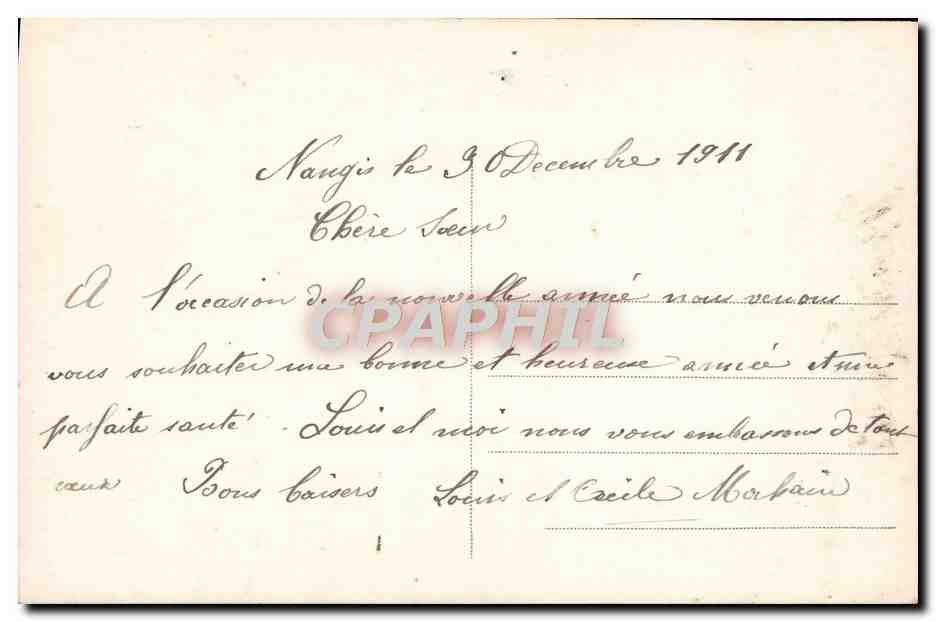 Nangis le 30 Decembre 1911
Chère Sœur
A l'occasion de la nouvelle année nous venons
CPAPHIL
vous souhaiter une bonne et heureuse année et une
parfaite santé. Louis et moi nous vous embassons de tout
cœur Bons baisers Louis et Cécile